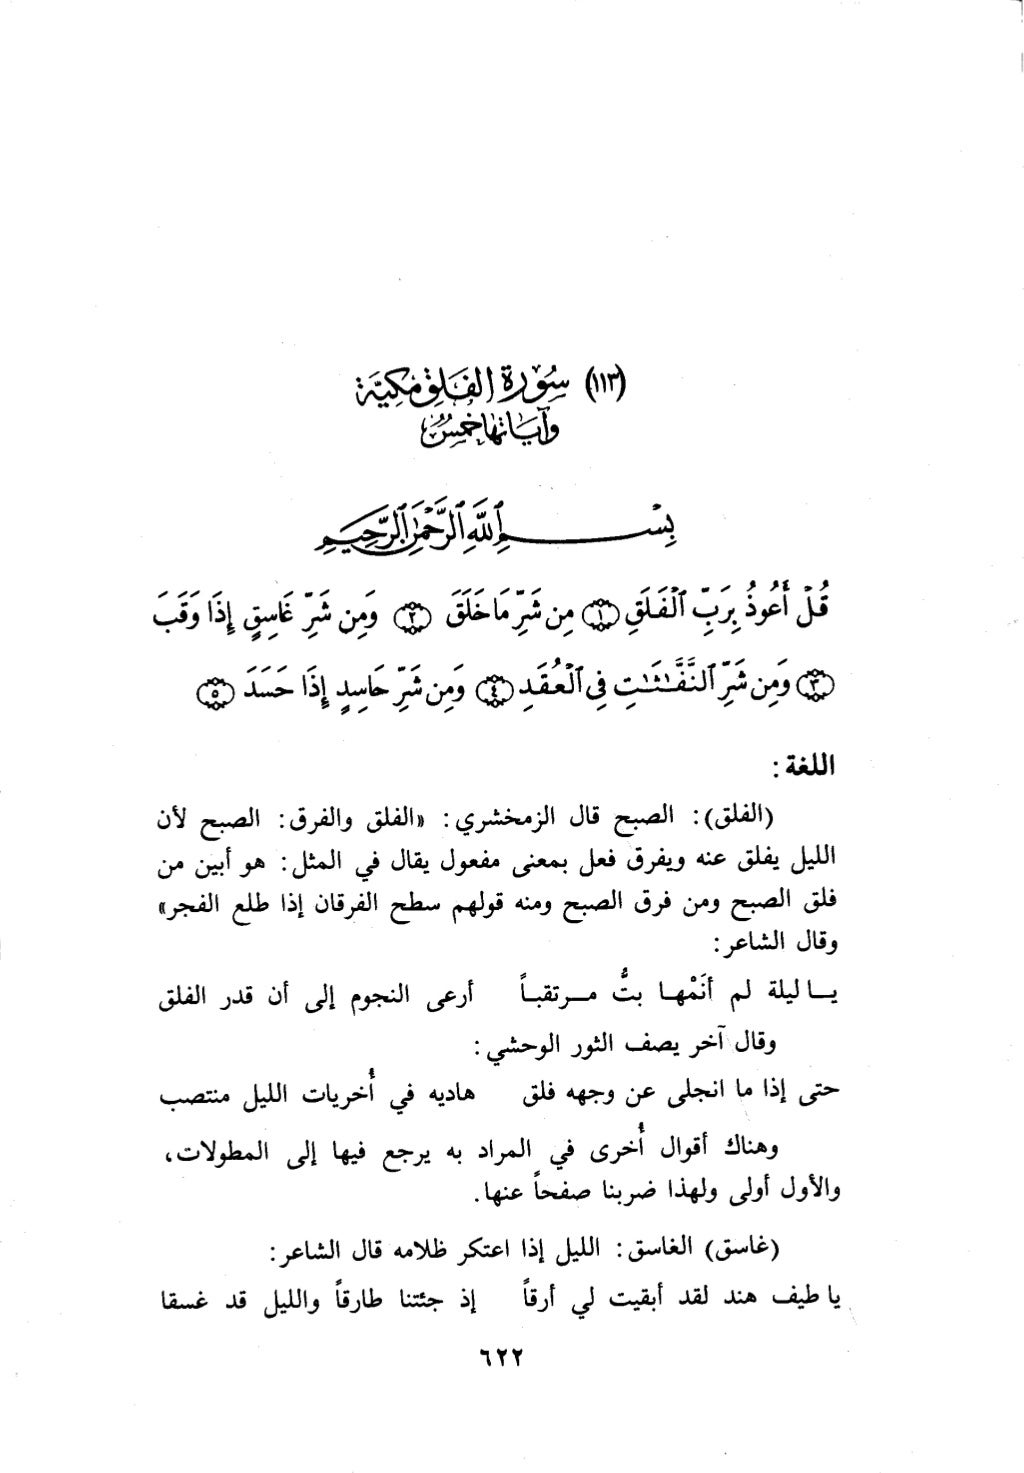 (١١٣) سُورَةِ الفَلَقِ مَكِيَّة
وَآيَاتُهَا خَمْسٌ
بِسْمِ ٱللَّهِ ٱلرَّحْمَٰنِ ٱلرَّحِيمِ
قُلْ أَعُوذُ بِرَبِّ ٱلْفَلَقِ ١ مِن شَرِّ مَا خَلَقَ ٢ وَمِن شَرِّ غَاسِقٍ إِذَا وَقَبَ
٣ وَمِن شَرِّ ٱلنَّفَّٰثَٰتِ فِى ٱلْعُقَدِ ٤ وَمِن شَرِّ حَاسِدٍ إِذَا حَسَدَ ٥
اللغة :
(الفلق): الصبح قال الزمخشري: «الفلق والفرق: الصبح لأن
الليل يفلق عنه ويفرق فعل بمعنى مفعول يقال في المثل: هو أبين من
فلق الصبح ومن فرق الصبح ومنه قولهم سطح الفرقان إذا طلع الفجر»
وقال الشاعر:
يا ليلة لم أنَمْها بتُّ مرتقباً أرعى النجوم إلى أن قدر الفلق
وقال آخر يصف الثور الوحشي:
حتى إذا ما انجلى عن وجهه فلق هاديه في أُخريات الليل منتصب
وهناك أقوال أُخرى في المراد به يرجع فيها إلى المطولات،
والأول أولى ولهذا ضربنا صفحاً عنها.
(غاسق) الغاسق: الليل إذا اعتكر ظلامه قال الشاعر:
يا طيف هند لقد أبقيت لي أرقاً إذ جئتنا طارقاً والليل قد غسقا
٦٢٢